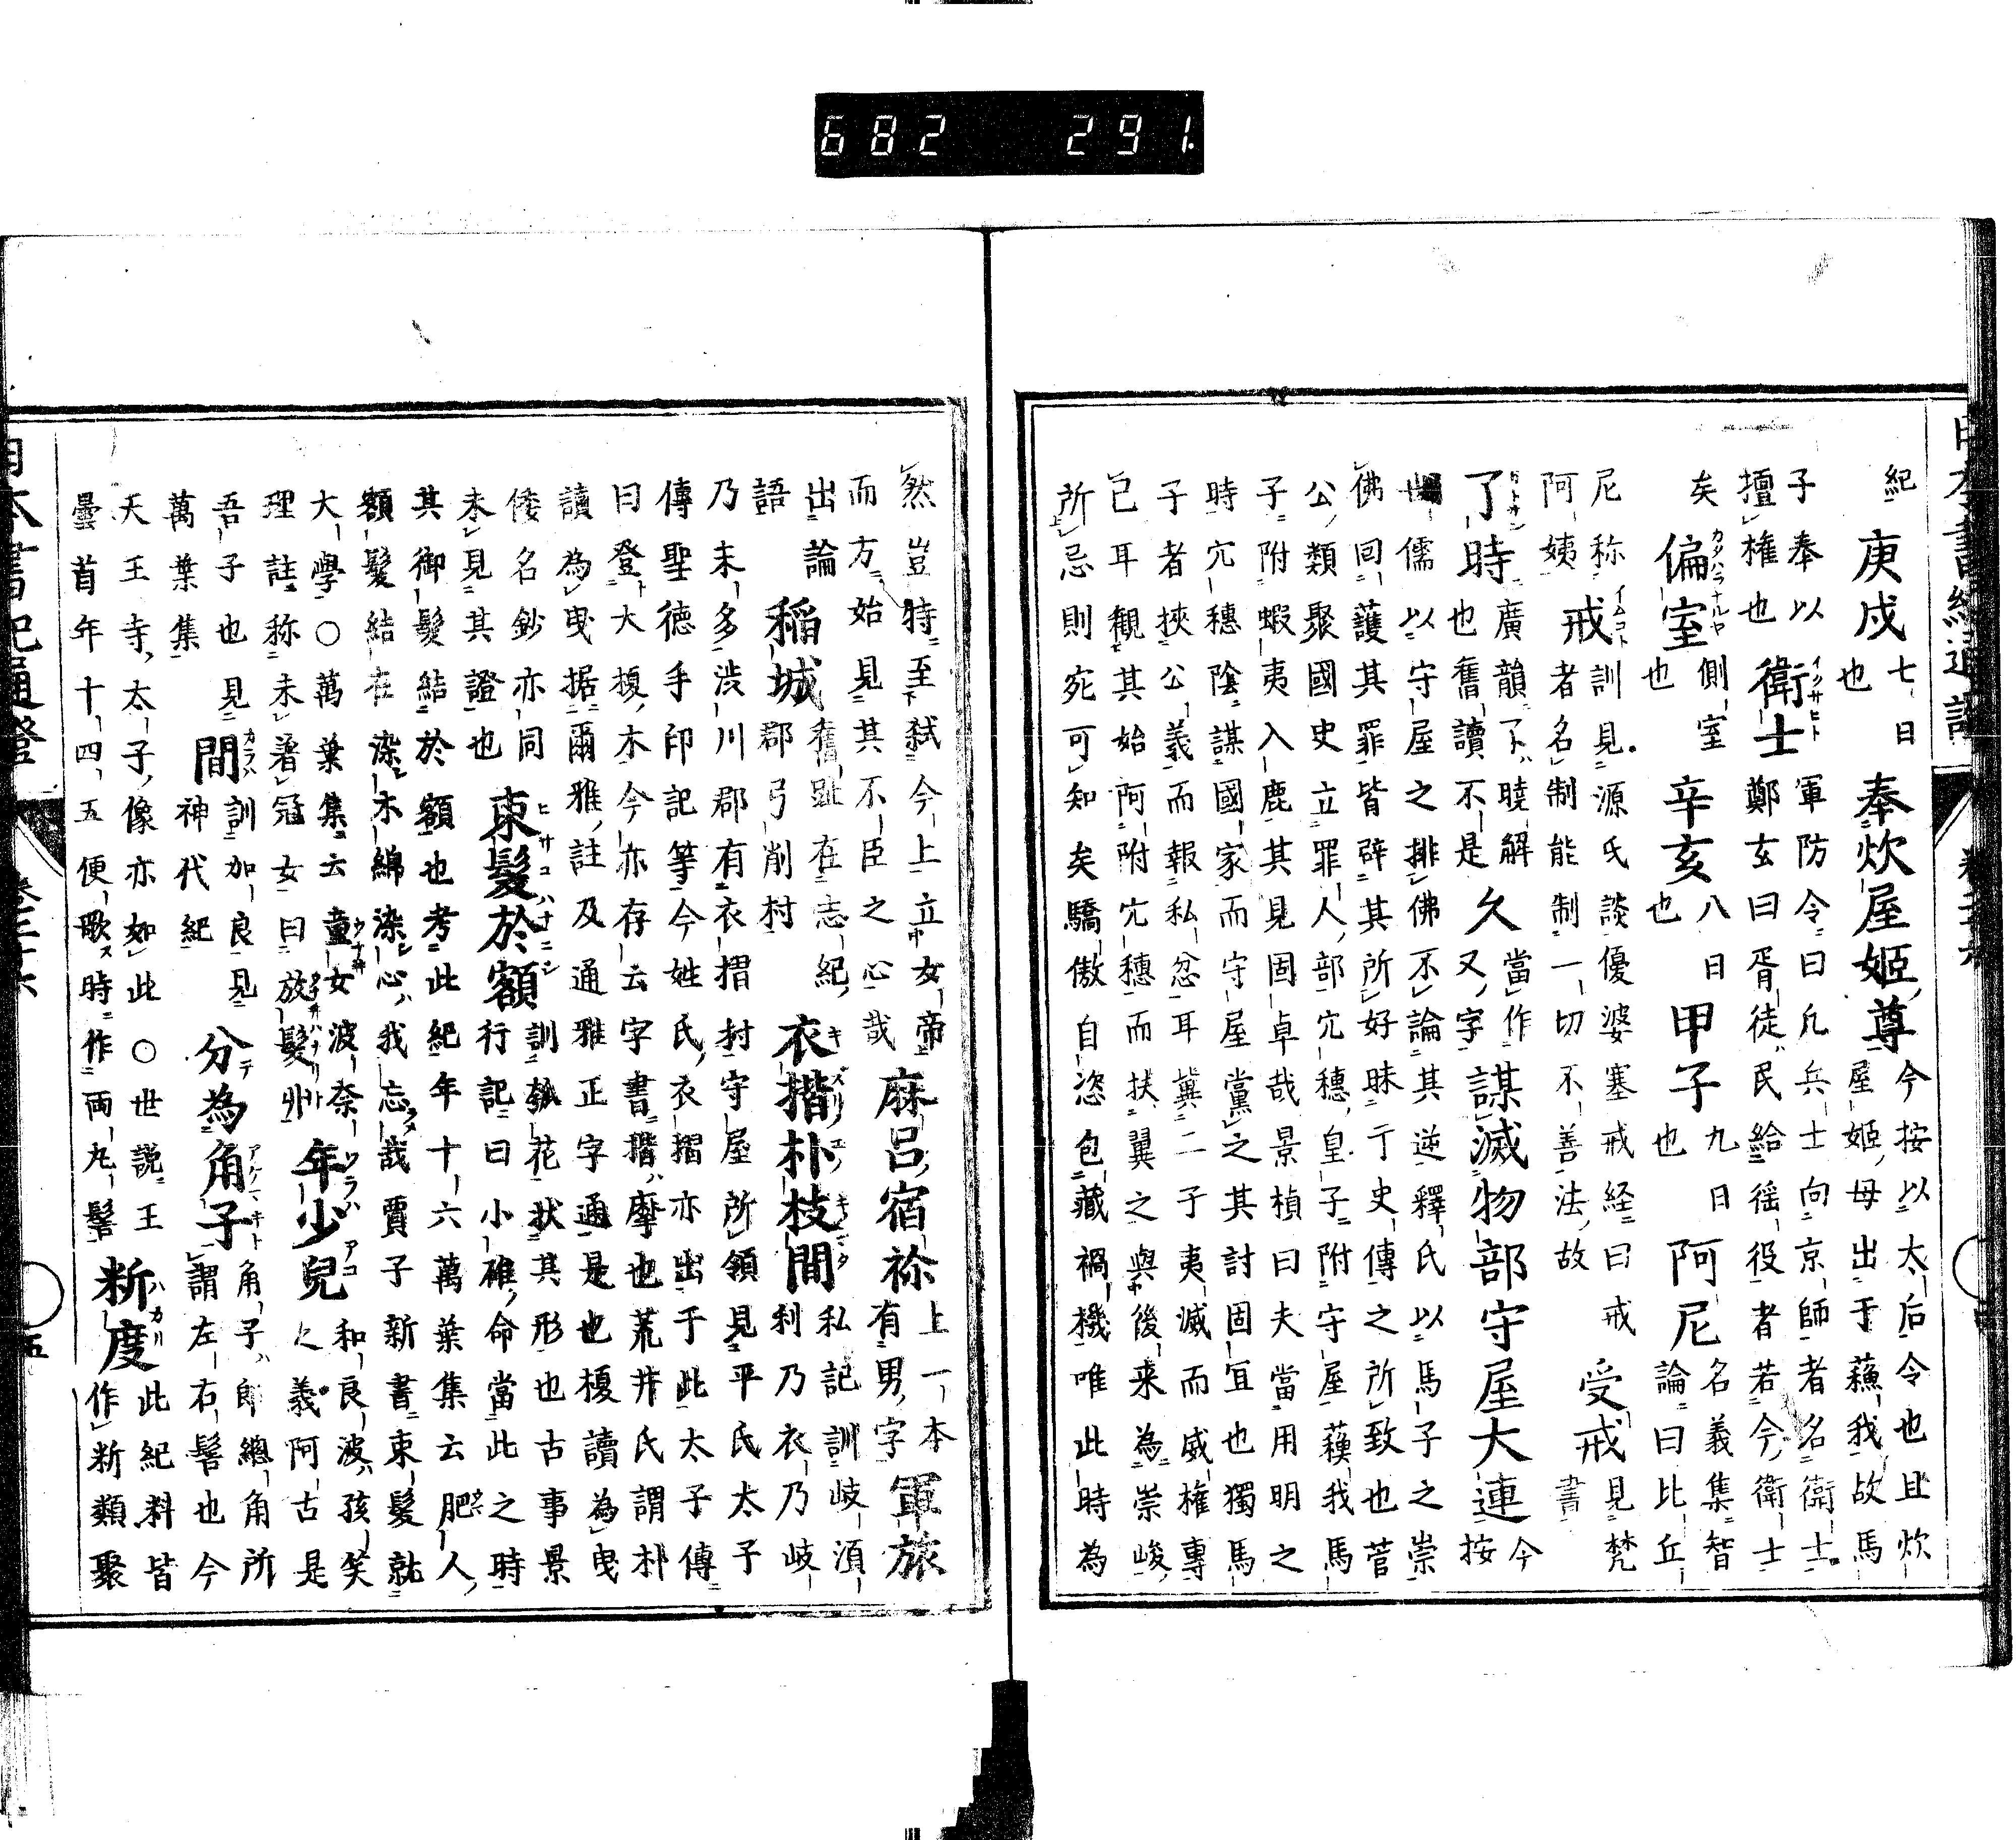 682 291
日本書紀通證
紀 庚戌 七日也 奉炊屋姫尊 今按以太后令也且炊屋姫母出于蘓我故馬
子奉以擅權也 衛士 軍防令曰凡兵士向京師者名衛士鄭玄曰胥徒民給徭役者若今衛士
矣 偏室 側室也 辛亥 八日也 甲子 九日也 阿尼 名義集智論曰比丘
尼称阿姨 戒 訓見源氏談優婆塞戒経曰戒者名制能制一切不善法故 受戒 見梵書
了時 廣韻了曉解也舊讀不是 久 當作又字 謀滅物部守屋大連 今按
世儒以守屋之排佛不論其逆釋氏以馬子之崇
佛回護其罪皆辟其所好昧亍史傳之所致也菅
公類聚國史立罪人部宍穗皇子附守屋蘓我馬
子附蝦夷入鹿其見固卓哉景楨曰夫當用明之
時宍穗陰謀國家而守屋黨之其討固宜也獨馬
子者挾公義而報私忿耳冀二子夷滅而威權專
已耳觀其始阿附宍穗而扶翼之與後来為崇峻
所忌則死可知矣驕傲自恣包藏禍機唯此時為
然豈特至弑今上立女帝而方始見其不臣之心哉 麻呂宿祢 上一本有男字 軍旅
出論語 稲城 舊趾在志紀郡弓削村 衣揩朴枝間 私記訓岐湏利乃衣乃岐
乃末多渋川郡有衣摺村守屋所領見平氏太子
傳聖徳手印記等今姓氏衣摺亦出于此太子傳
曰登大榎木今亦存云字書揩摩也荒井氏謂朴
讀為曳据爾雅註及通雅正字通是也榎讀為曳
倭名鈔亦同未見其證也 束髮於額 訓瓠花状其形也古事景行記曰小碓命當此之時
其御髮結於額也考此紀年十六萬葉集云肥人
額髮結在染木綿染心我忘哉賈子新書束髮就
大學○萬葉集云童女波奈理註称未著冠女曰放髮丱 年少兒 和良波孩笑之義阿古是
吾子也見萬葉集 間 訓加良見神代紀 分為角子 角子郎總角所謂左右髻也今
天王寺太子像亦如此○世説王曇首年十四五便歌時作両丸髻 斷度 此紀料皆作斷類聚
日本書紀通證 五